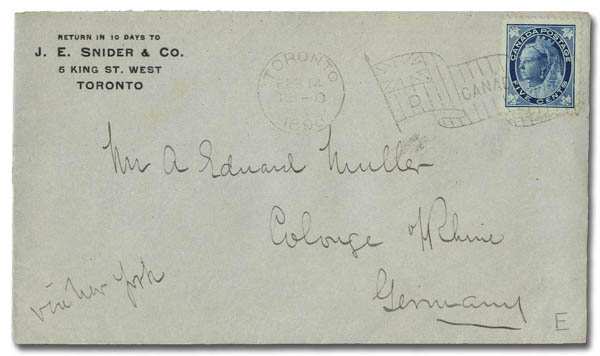 RETURN IN 10 DAYS TO
J. E. SNIDER & CO.
5 KING ST. WEST
TORONTO
TORONTO
14
CANADA POSTAGE
FIVE CENTS
D
CANA
Mr A Eduard Muller
Colonge o/Rhine
Germany
via New York
E